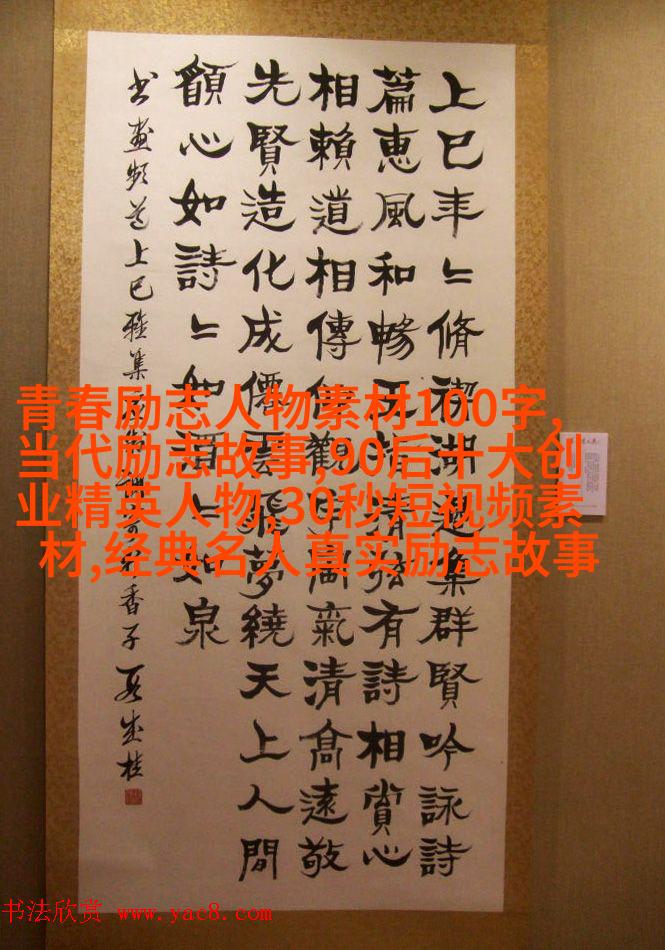 上巳年〻脩禊湖邊集群賢吟詠詩
篇惠風和暢有詩相賞心
相賴道相傳觀氣清高遠敬
先賢造化成僊雲夢繞天上人間
願心如詩〻如〻如泉
书画频道上巳雅集香子
青春励志人物素材100字,
当代励志故事,90后十大创
业精英人物,30秒短视频素
材,经典名人真实励志故事
书法欣赏 www.yac8.com